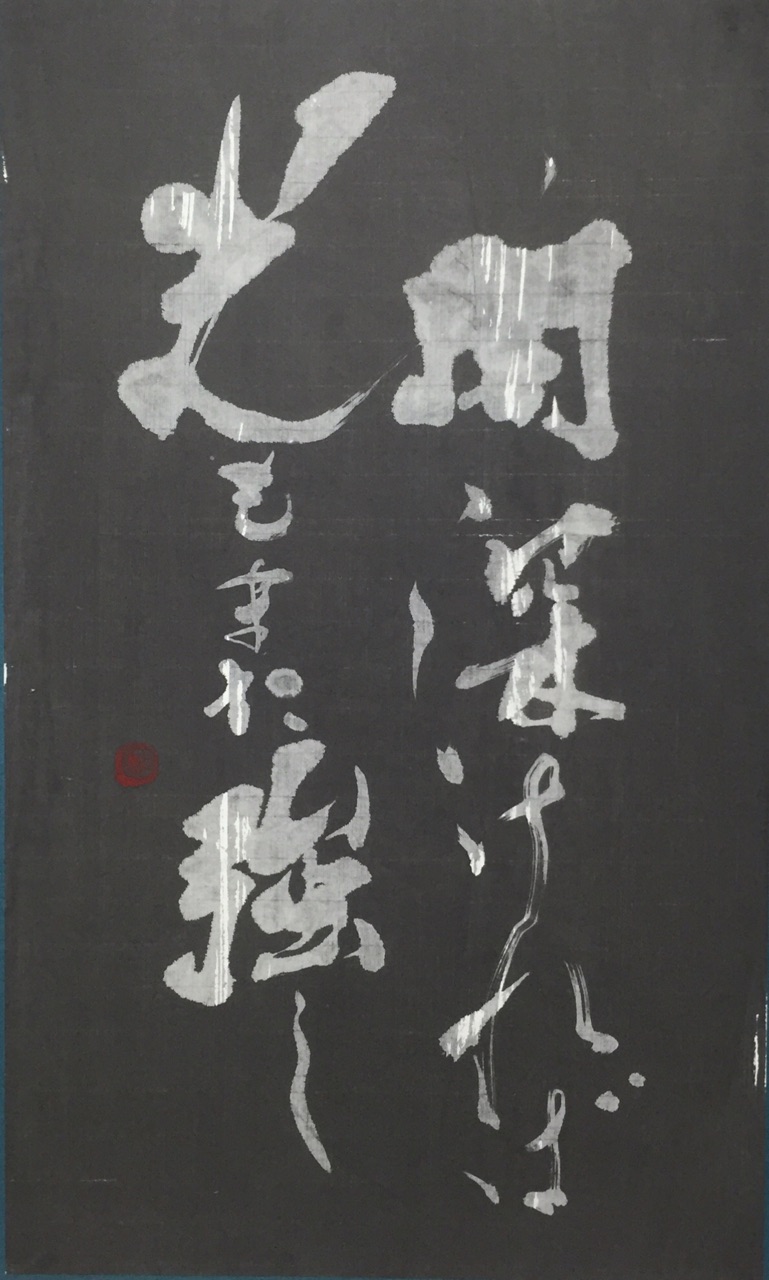 闇深ければ
光もまた強し